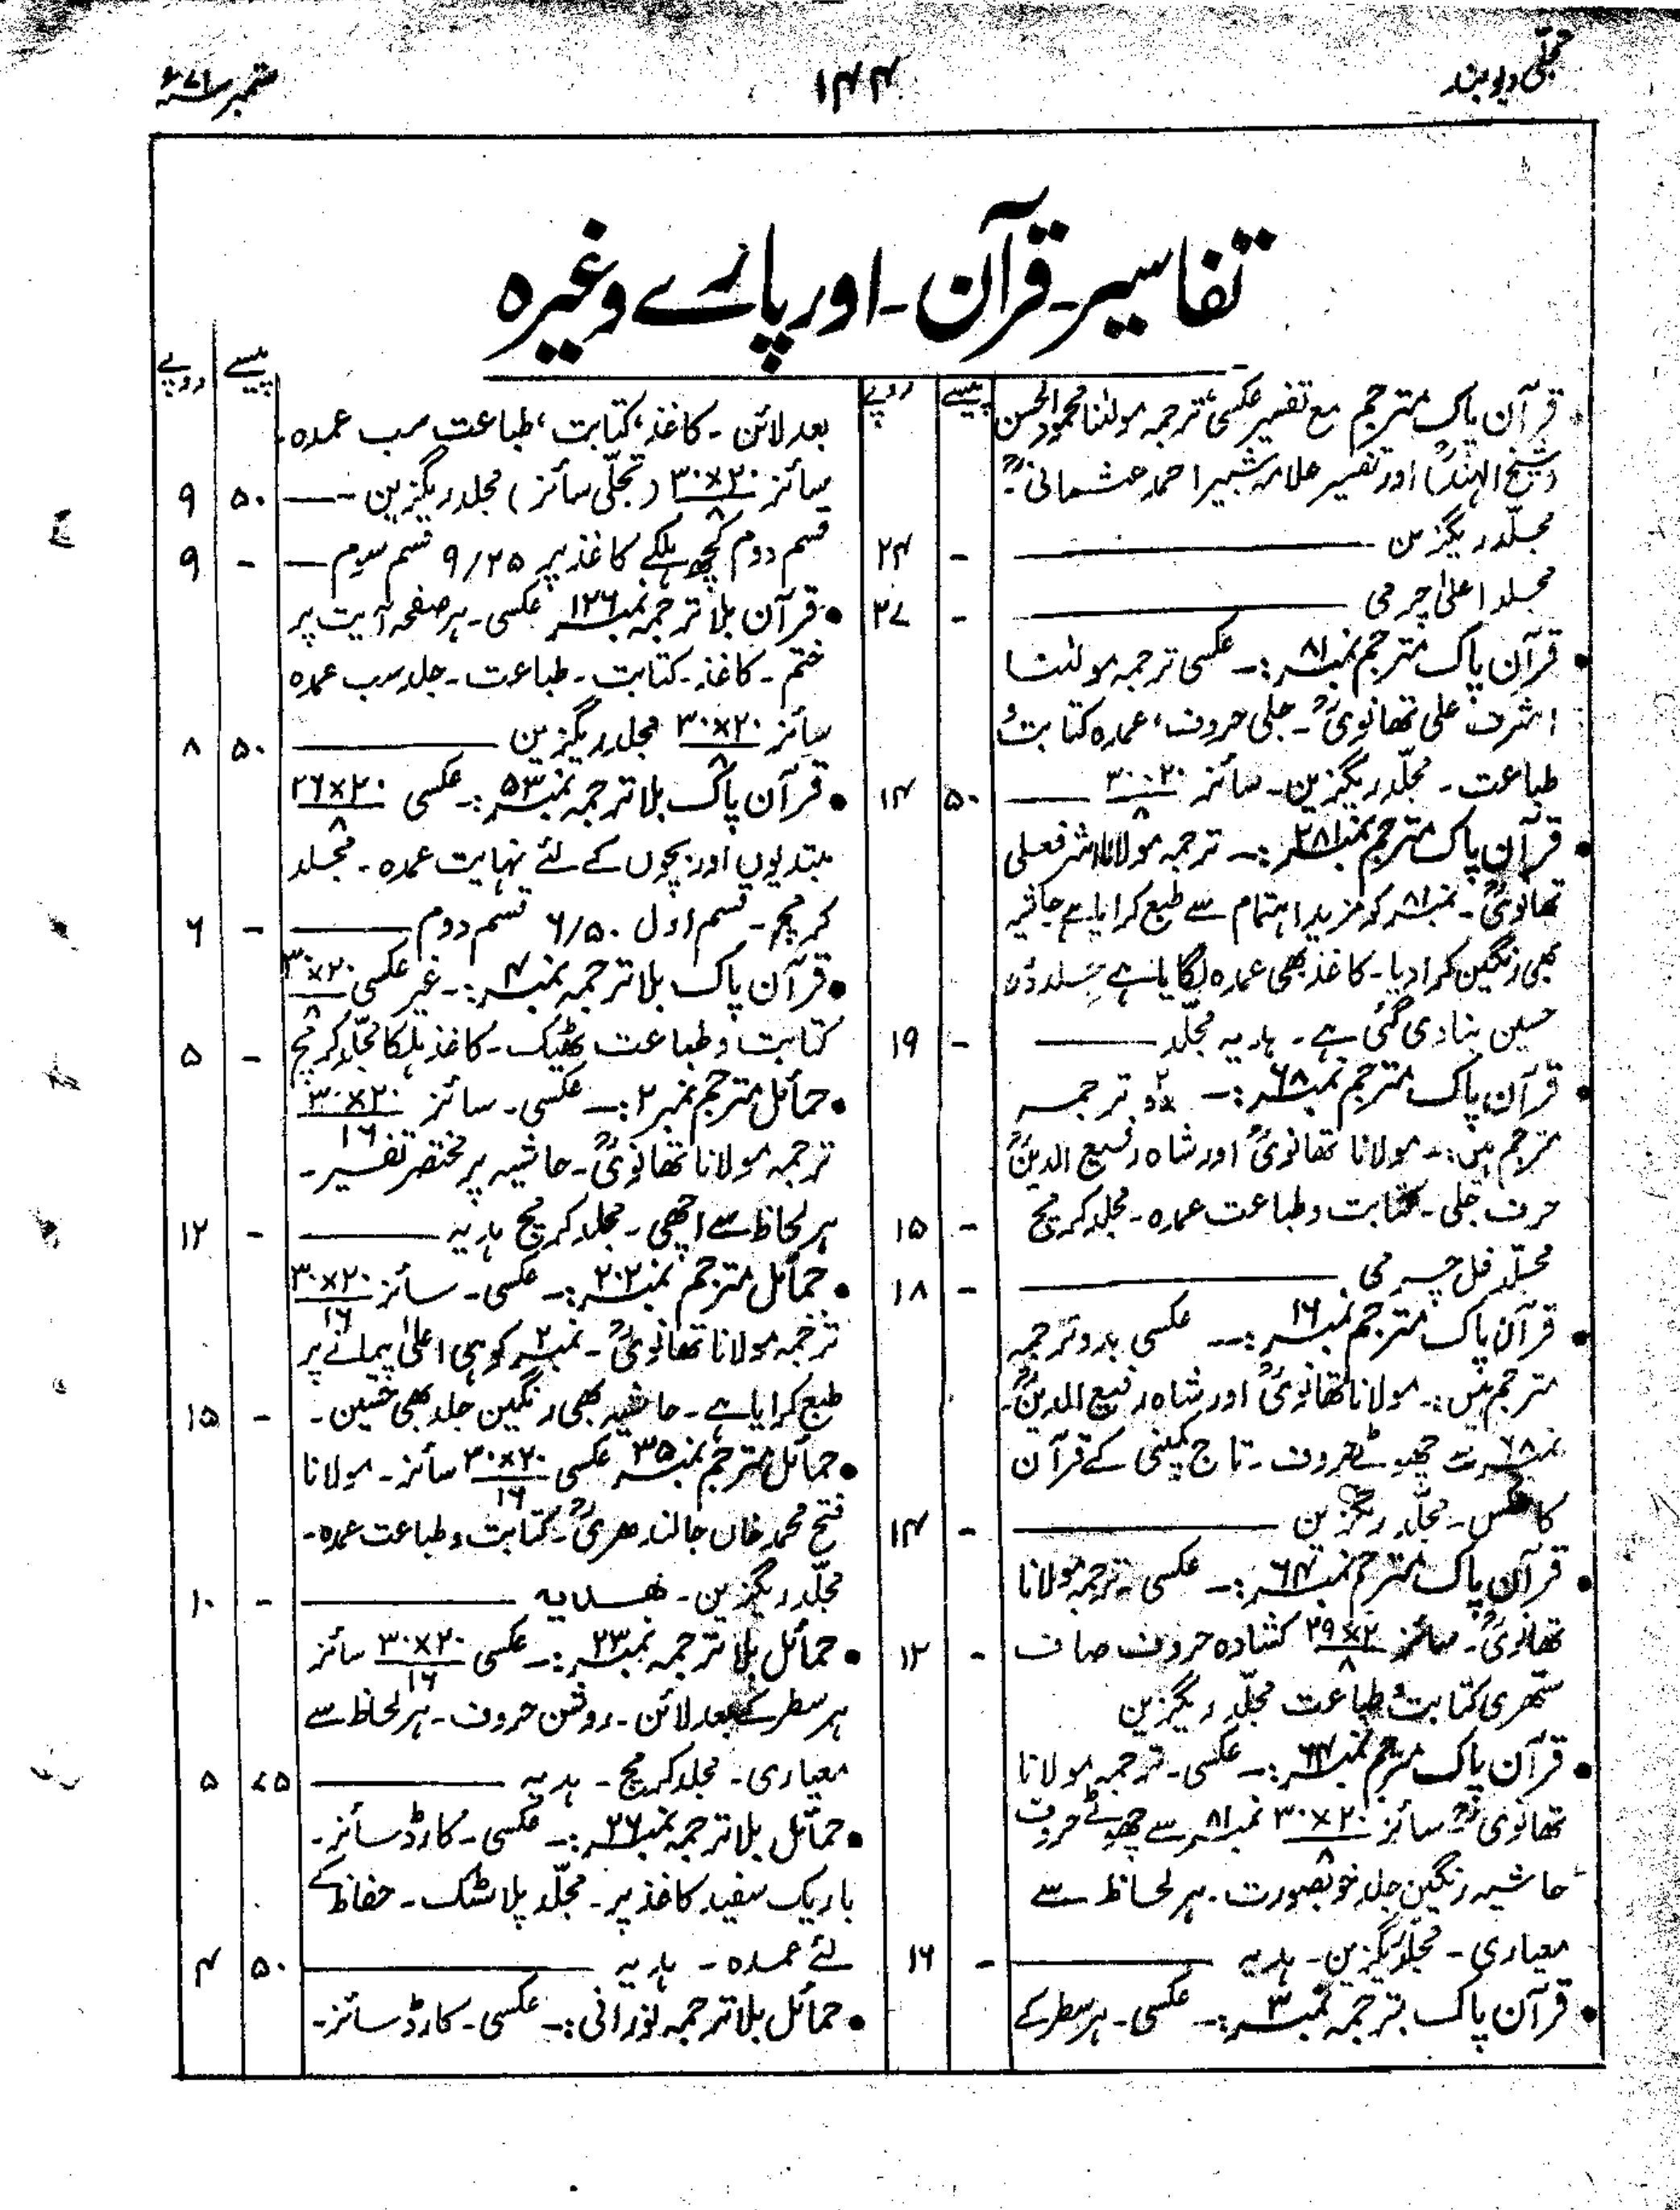 تجلی دیوبند
۱۴۴
ستمبر سنہ ۷۱ء
تفاسیر۔ قرآن۔ اور پارے وغیرہ
پیسے روپے
قرآن پاک مترجم مع تفسیر عکسی، ترجمہ مولٰنا محمود الحسن
(شیخ الہندؒ) اور تفسیر علامہ شبیر احمد عثمانیؒ۔
مجلّد ریگزین ——— - ۲۴
مجلد اعلیٰ چرمی ——— - ۲۷
• قرآن پاک مترجم نمبر ۸۱:۔ عکسی ترجمہ مولٰنا
اشرف علی تھانویؒ۔ جلی حروف، عمدہ کتابت و
طباعت۔ مجلّد ریگزین۔ سائز ۲۰×۳۰/۸ ——— ۵۰ ۱۴
• قرآن پاک مترجم نمبر ۲۸۱:۔ ترجمہ مولانا اشرفعلی
تھانویؒ۔ نمبر ۸۱ کو مزید اہتمام سے طبع کرایا ہے حاشیہ
بھی رنگین کرا دیا۔ کاغذ بھی عمدہ لگایا ہے جلد
حسین بنا دی گئی ہے۔ ہدیہ مجلّد ——— - ۱۹
• قرآن پاک مترجم نمبر ۶۸:۔ بدو ترجمہ
مترجم ہیں:۔ مولانا تھانویؒ اور شاہ رفیع الدینؒ
حرف جلی۔ کتابت و طباعت عمدہ۔ مجلد کرمچ - ۱۵
مجلّد فل چرمی ——— - ۱۸
• قرآن پاک مترجم نمبر ۱۶:۔ عکسی بدو ترجمہ
مترجم ہیں:۔ مولانا تھانویؒ اور شاہ رفیع الدینؒ۔
نمبر ۶۸ سے چھوٹے حروف۔ تاج کمپنی کے قرآن
کا عکس۔ مجلّد ریگزین ——— - ۱۴
• قرآن پاک مترجم نمبر ۶۴:۔ عکسی۔ ترجمہ مولانا
تھانویؒ۔ سائز ۲۰×۲۹/۸ کشادہ حروف صاف - ۱۲
ستھری کتابت و طباعت مجلّد ریگزین
• قرآن پاک مترجم نمبر:۔ عکسی۔ ترجمہ مولانا
تھانویؒ سائز ۲۰×۳۰/۸ نمبر ۸۱ سے چھوٹے حروف
حاشیہ رنگین جلد خوبصورت۔ ہر لحاظ سے
معیاری۔ مجلّد ریگزین۔ ہدیہ ——— - ۱۶
• قرآن پاک بترجمہ نمبر ۳:۔ عکسی۔ ہر سطر کے
پیسے روپے
بعد لائن۔ کاغذ، کتابت، طباعت سب عمدہ۔
سائز ۲۰×۳۰/۸ (تجلّی سائز) مجلد ریگزین ——— ۵۰ ۹
قسم دوم کچھ ہلکے کاغذ پر ۹/۲۵ قسم سوم ——— - ۹
• قرآن بلا ترجمہ نمبر ۱۲۶ عکسی۔ ہر صفحہ آیت پر
ختم۔ کاغذ۔ کتابت۔ طباعت۔ جلد سب عمدہ
سائز ۲۰×۳۰/۸ مجلد ریگزین ——— ۵۰ ۸
• قرآن پاک بلا ترجمہ نمبر ۵۳:۔ عکسی ۲۰×۲۶/۸
مبتدیوں اور بچوں کے لئے نہایت عمدہ۔ مجلد
کرمچ۔ قسم اول ۶/۵۰ قسم دوم ——— - ۶
• قرآن پاک بلا ترجمہ نمبر ۴:۔ غیر عکسی ۲۰×۳۰/۸
کتابت و طباعت ٹھیک۔ کاغذ ہلکا مجلّد کرمچ - ۵
• حمائل مترجم نمبر ۲:۔ عکسی۔ سائز ۲۰×۳۰/۱۶
ترجمہ مولانا تھانویؒ۔ حاشیہ پر مختصر تفسیر۔
ہر لحاظ سے اچھی۔ مجلد کرمچ ہدیہ ——— - ۱۲
• حمائل مترجم نمبر ۲۰۲:۔ عکسی۔ سائز ۲۰×۳۰/۱۶
ترجمہ مولانا تھانویؒ۔ نمبر ۲ کو ہی اعلیٰ پیمانے پر
طبع کرایا ہے۔ حاشیہ بھی رنگین جلد بھی حسین۔ - ۱۵
• حمائل مترجم نمبر ۳۵ عکسی ۲۰×۳۰/۱۶ سائز۔ مولانا
فتح محمد خاں جالندھریؒ۔ کتابت و طباعت عمدہ۔
مجلّد ریگزین۔ ھدیہ ——— - ۱۰
• حمائل بلا ترجمہ نمبر ۲۳:۔ عکسی ۲۰×۳۰/۱۶ سائز
ہر سطر کے بعد لائن۔ روشن حروف۔ ہر لحاظ سے
معیاری۔ مجلد کرمچ۔ ہدیہ ——— ۷۵ ۵
• حمائل بلا ترجمہ نمبر ۲۶:۔ عکسی۔ کارڈ سائز۔
باریک سفید کاغذ پر۔ مجلّد پلاسٹک۔ حفاظ کے
لئے عمدہ۔ ہدیہ ——— ۵۰ ۴
• حمائل بلا ترجمہ نورانی:۔ عکسی۔ کارڈ سائز۔